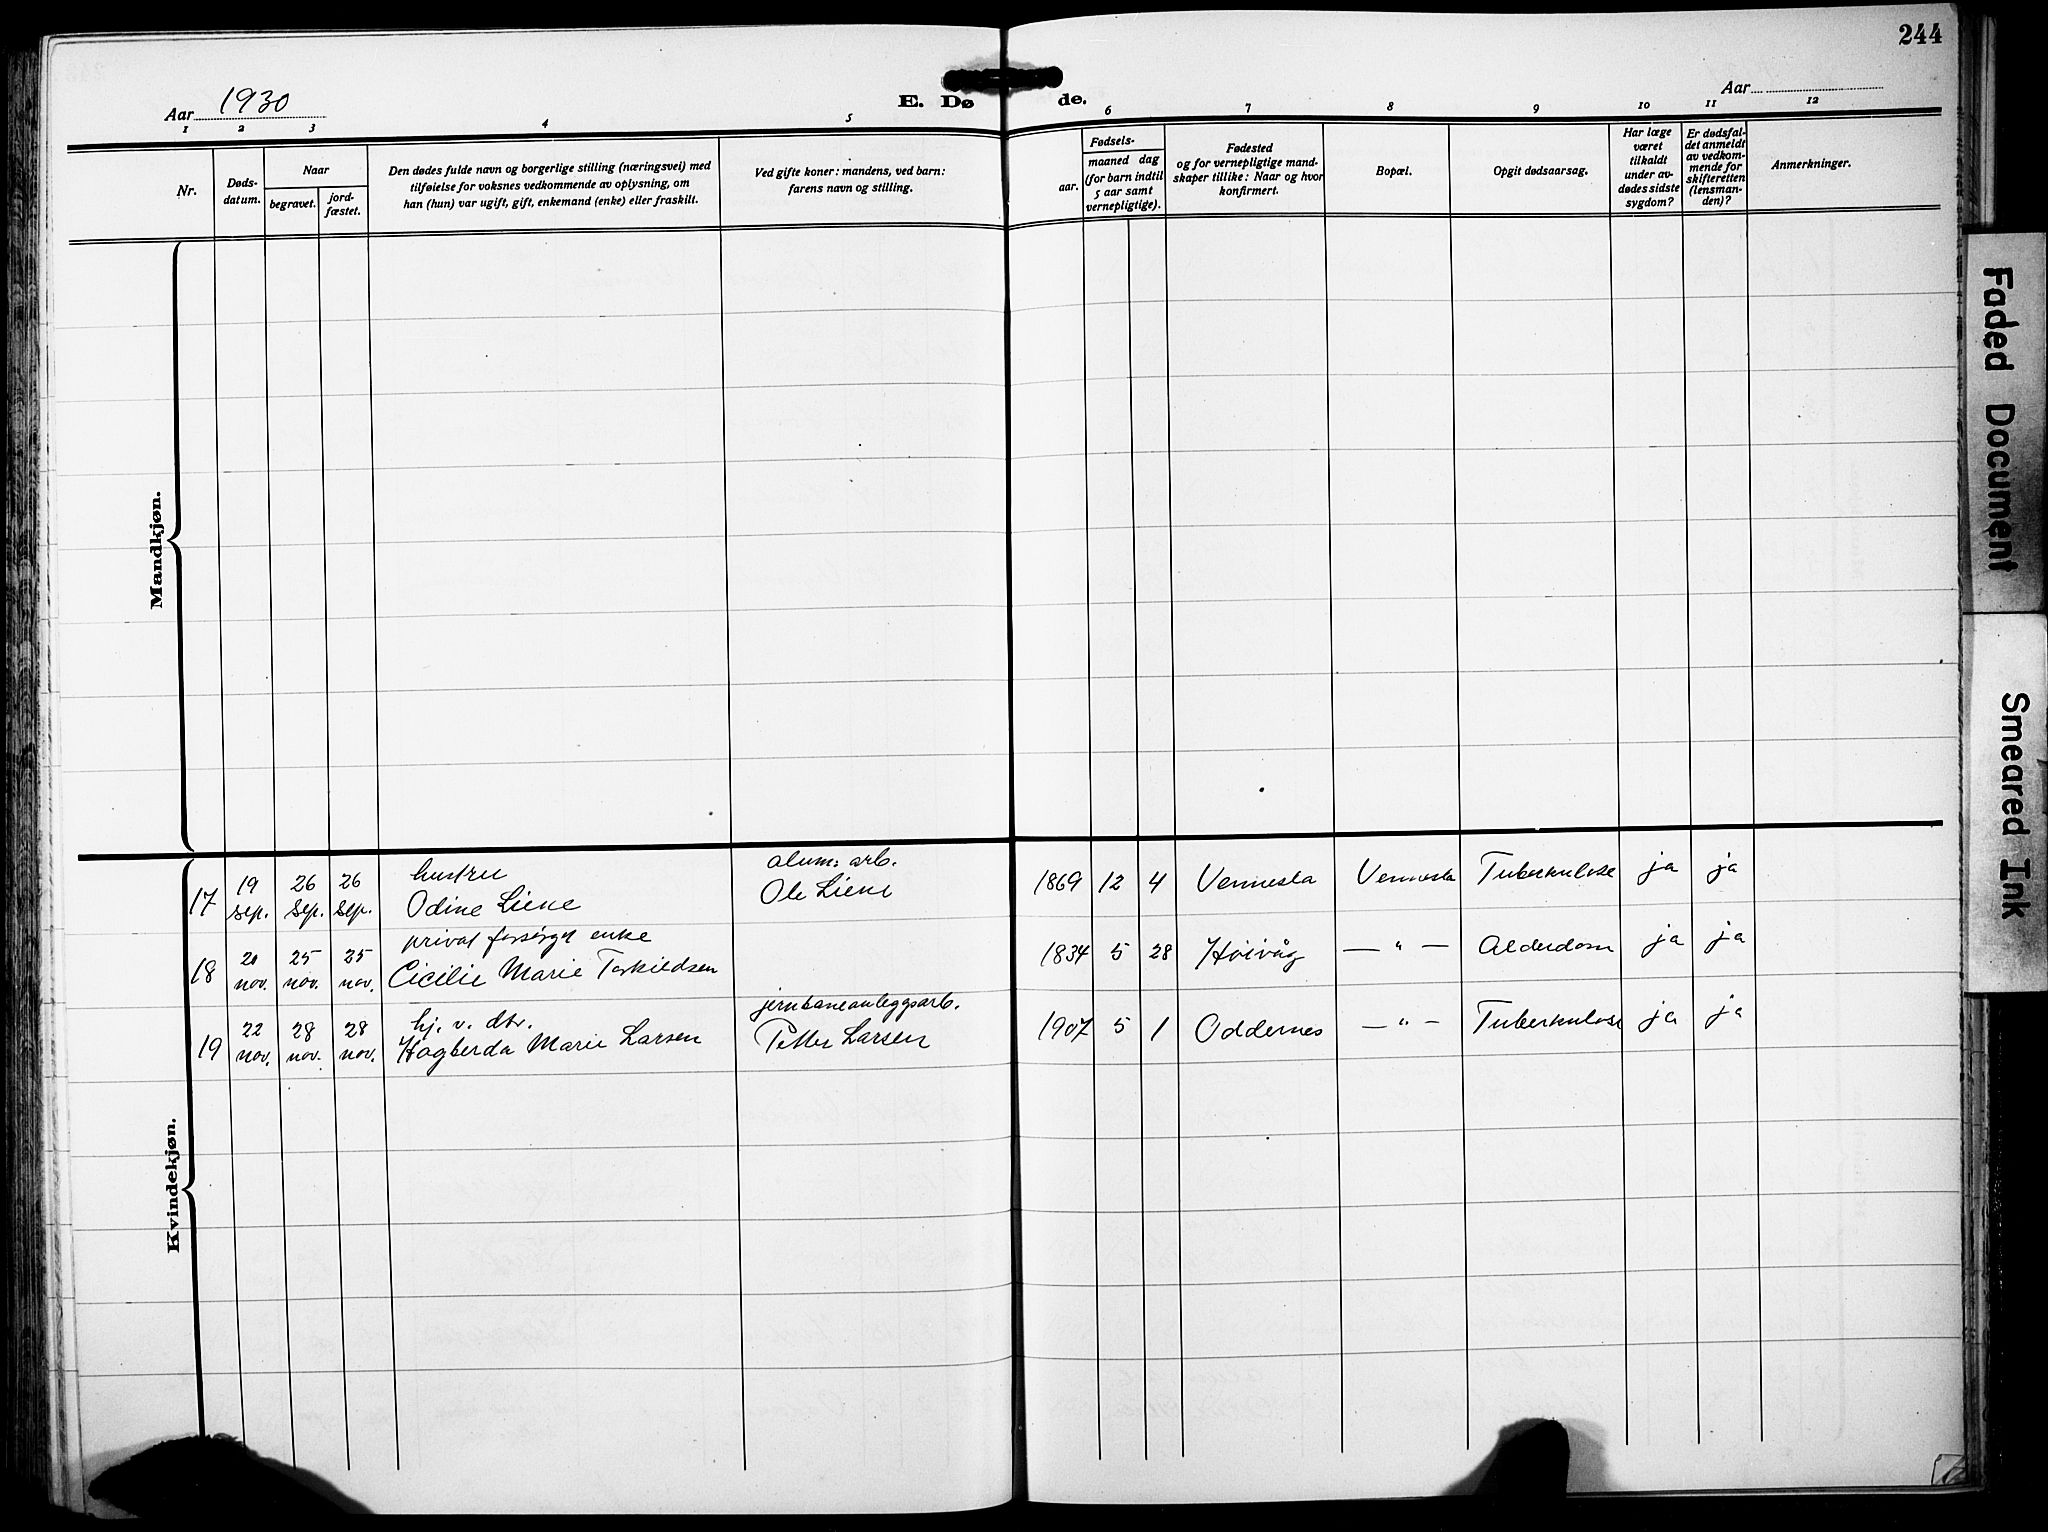 244
Aar 1930
E. Dø de.
Aar
1 2 3 4 5 6 7 8 9 10 11 12
Nr.
Døds-
datum.
Naar
begravet.
jord-
fæstet.
Den dødes fulde navn og borgerlige stilling (næringsvei) med
tilføielse for voksnes vedkommende av oplysning, om
han (hun) var ugift, gift, enkemand (enke) eller fraskilt.
Ved gifte koner: mandens, ved barn:
farens navn og stilling.
Fødsels-
aar.
maaned dag
(for barn indtil
5 aar samt
vernepligtige).
Fødested
og for vernepligtige mand-
skaper tillike: Naar og hvor
konfirmert.
Bopæl.
Opgit dødsaarsag.
Har læge
været
tilkaldt
under av-
dødes sidste
sygdom?
Er dødsfal-
det anmeldt
av vedkom-
mende for
skifteretten
(lensman-
den)?
Anmerkninger.
Mandkjøn.
Kvindekjøn.
hustru alum: arb.
17 19 sep. 26 sep. 26 sep. Odine Liene Ole Liene 1869 12 4 Vennesla Vennesla Tuberkulose ja ja
privat forsørget enke
18 20 nov. 25 nov. 25 nov. Cicilie Marie Torkildsen 1834 5 28 Høivåg — " — Alderdom ja ja
hj. v. dtr. jernbaneanleggsarb.
19 22 nov. 28 nov. 28 nov. Hagberda Marie Larsen Petter Larsen 1907 5 1 Oddernes — " — Tuberkulose ja ja
Faded Document
Smeared Ink